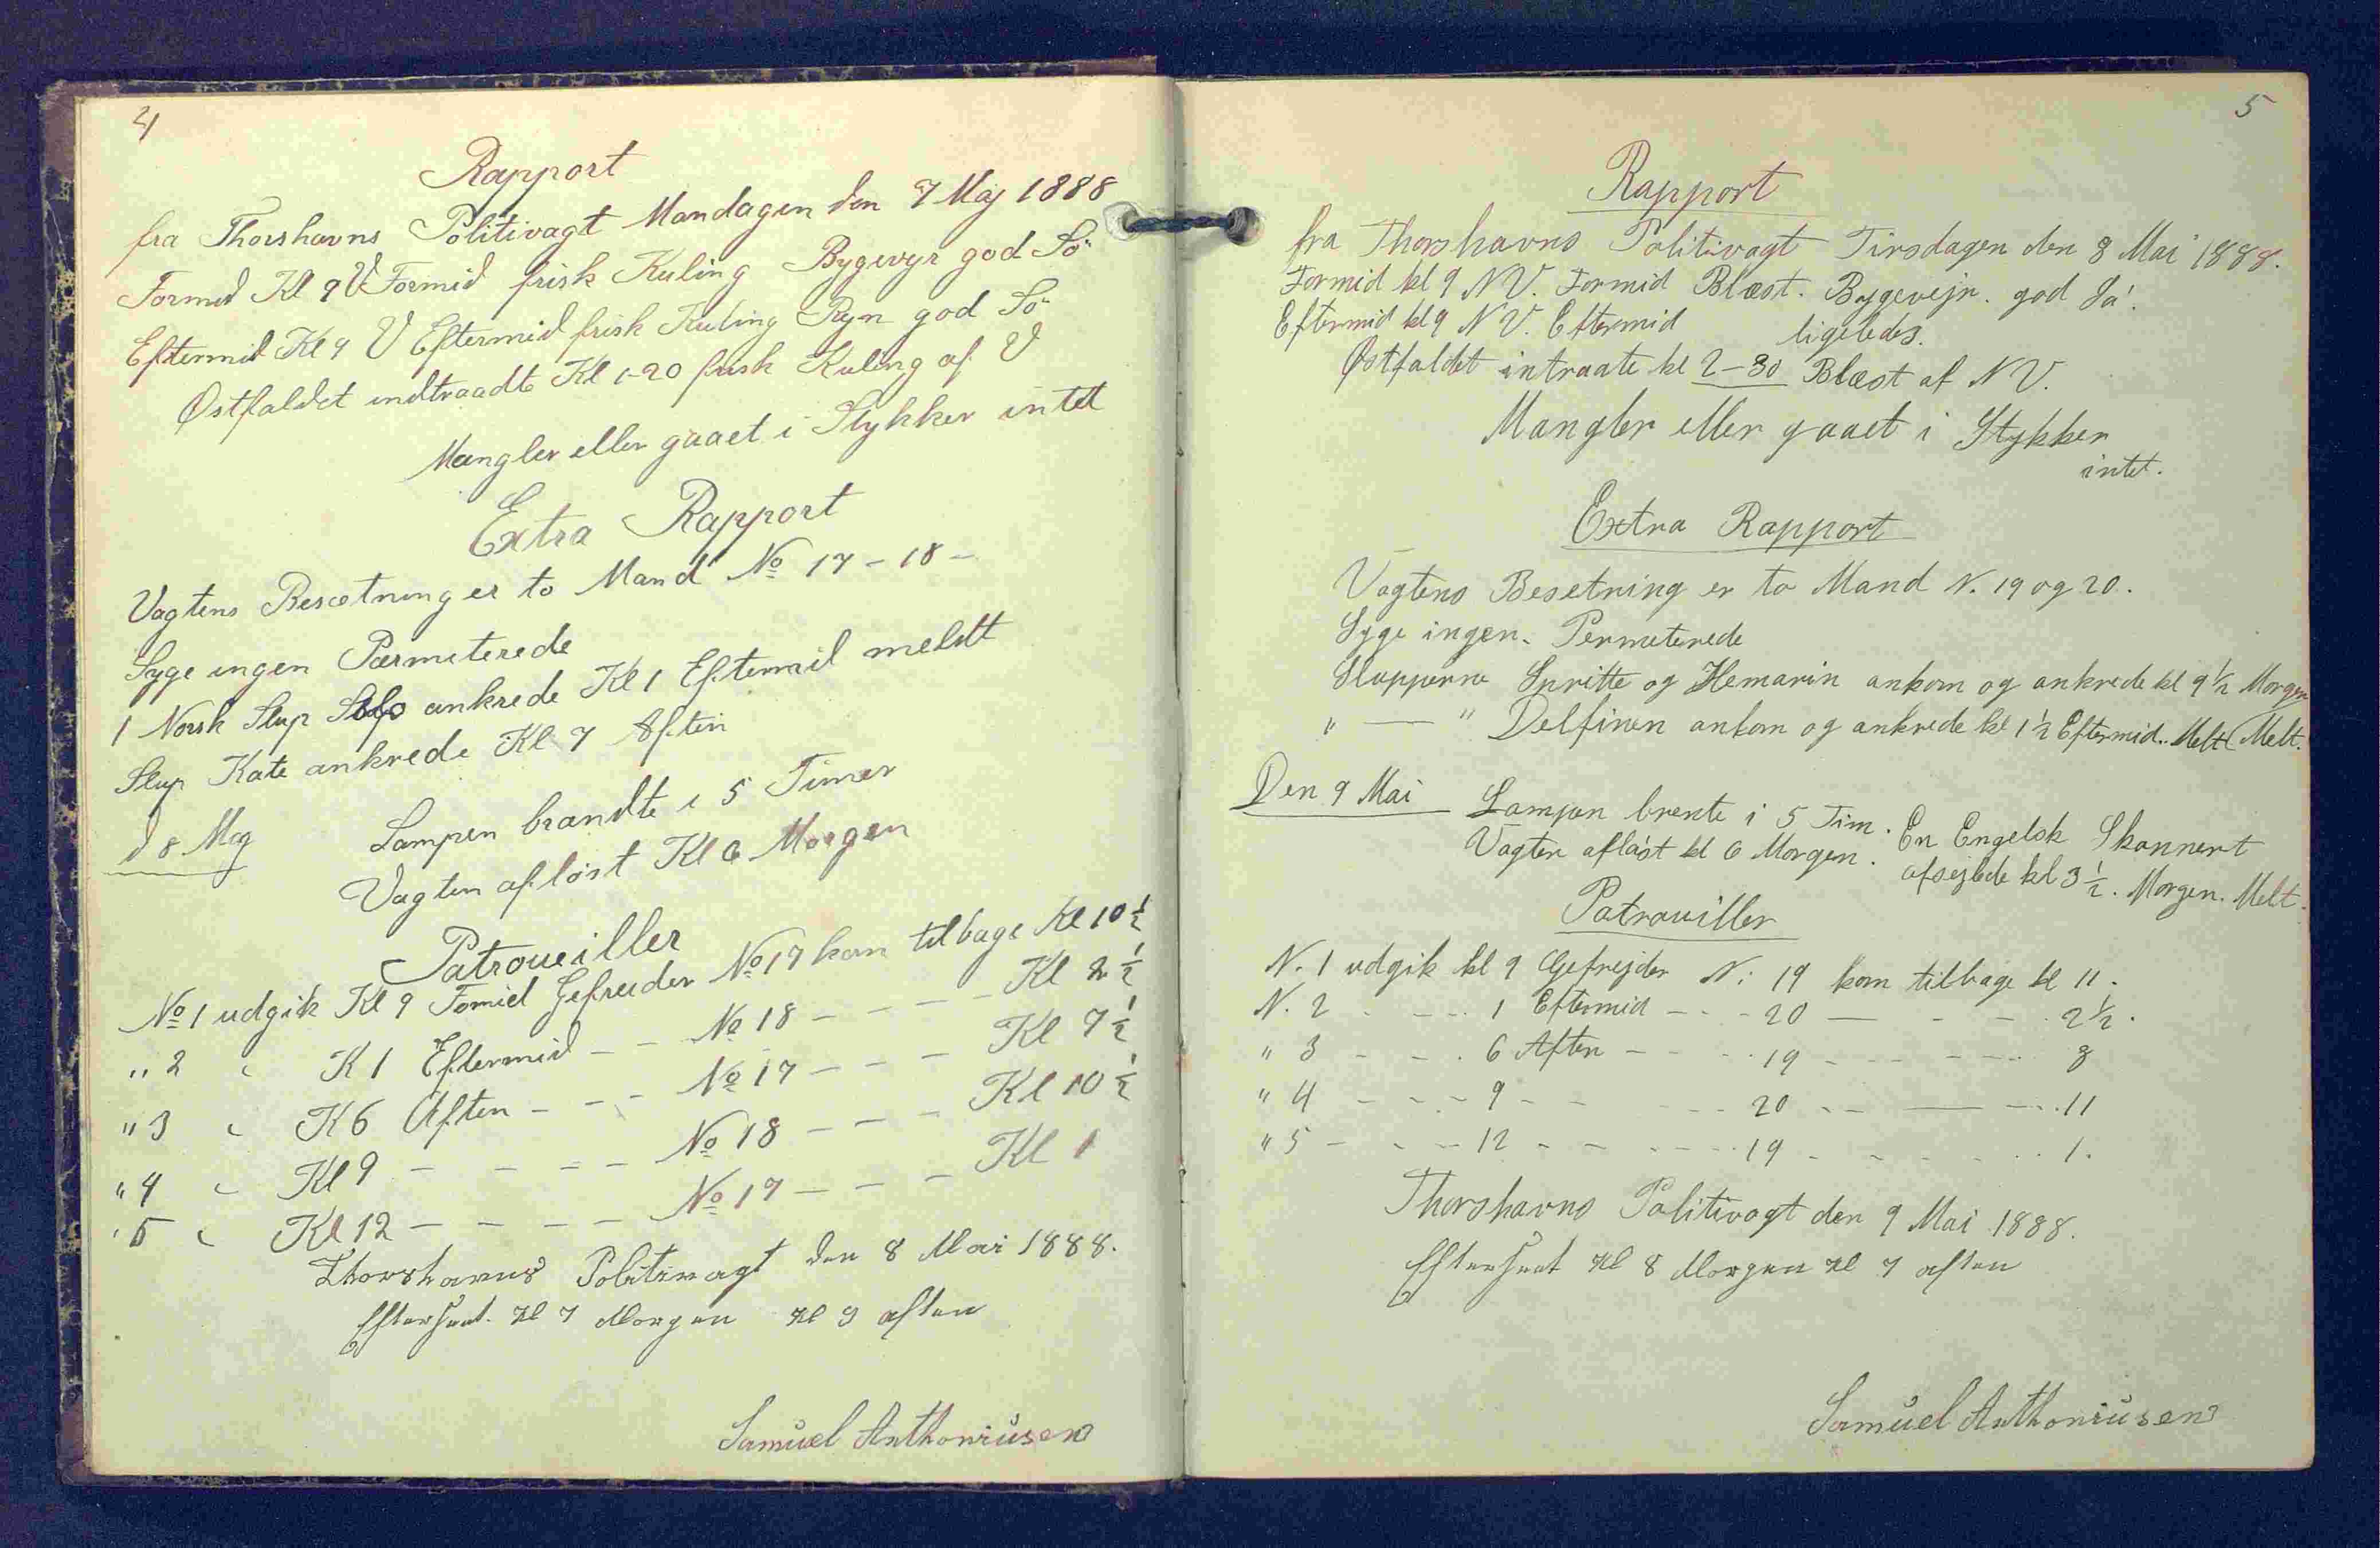 4
Rapport
fra Thorshavns Politivagt Mandagen den 7 Maj 1888
Formid Kl 9 V Formid frisk Kuling Bygevyr god Sö
Eftermid Kl 9 V Eftermid frisk Kuling Ryn god Sö
Østfaldet indtraadte Kl 1-20 frisk Kuling af V
Mangler eller gaaet i Stykker intet
Extra Rapport
Vagtens Besætning er to Mand No 17 - 18 -
Syge ingen Pærmeterede
1 Norsk Slup ankrede Kl 1 Eftermid meldt
Slup Kate ankrede Kl 7 Aften
d 8 Maj Lampen brandte i 5 Timer
Vagten afløst Kl 6 Morgen
Patroueiller
No 1 udgik Kl 9 Fomid Gefreider No 17 kom tilbage Kl 10 1/2
" 2 " K 1 Eftermid - - No 18 - - - - Kl 2 1/2
" 3 " K 6 Aften - - - No 17 - - - Kl 7 1/2
" 4 " Kl 9 - - - - No 18 - - - Kl 10 1/2
" 5 " Kl 12 - - - - No 17 - - - Kl 1
Thorshavns Politivagt den 8 Mai 1888.
Efterseet Kl 7 Morgen Kl 9 aften
Samuel Anthoniusen
5
Rapport
fra Thorshavns Politivagt Tirsdagen den 8 Mai 1888.
Formid kl 9 NV. Formid Blæst. Bygevejr. god Sø.
Eftermid kl 9 NV. Eftermid ligeledes.
Østfaldet intraate kl 2-30 Blæst af NV.
Mangler eller gaaet i Stykker
intet.
Extra Rapport
Vagtens Besetning er to Mand N. 19 og 20.
Syge ingen. Permeterede
Slupperne Spritte og Hemarin ankom og ankrede kl 9 1/2 Morgen
" — " Delfinen ankom og ankrede kl 1 1/2 Eftermid. Melt (Melt.
Den 9 Mai Lampen brente i 5 Tim. En Engelsk Skonnert
Vagten afløst kl 6 Morgen. afsejlede kl 3 1/2. Morgen. Melt.
Patrouiller
N. 1 udgik kl 9 Gefrejder N: 19 kom tilbage kl 11.
N. 2 - - - 1 Eftermid - - - 20 — - - 2 1/2.
" 3 - - - 6 Aften - - - 19 - - - - - 8
" 4 - - - 9 - - - - 20 - - — - - 11
" 5 - - - 12 - - - - 19 - - - - - 1.
Thorshavns Politivagt den 9 Mai 1888.
Efterseet Kl 8 Morgen Kl 7 aften
Samuel Anthoniusen